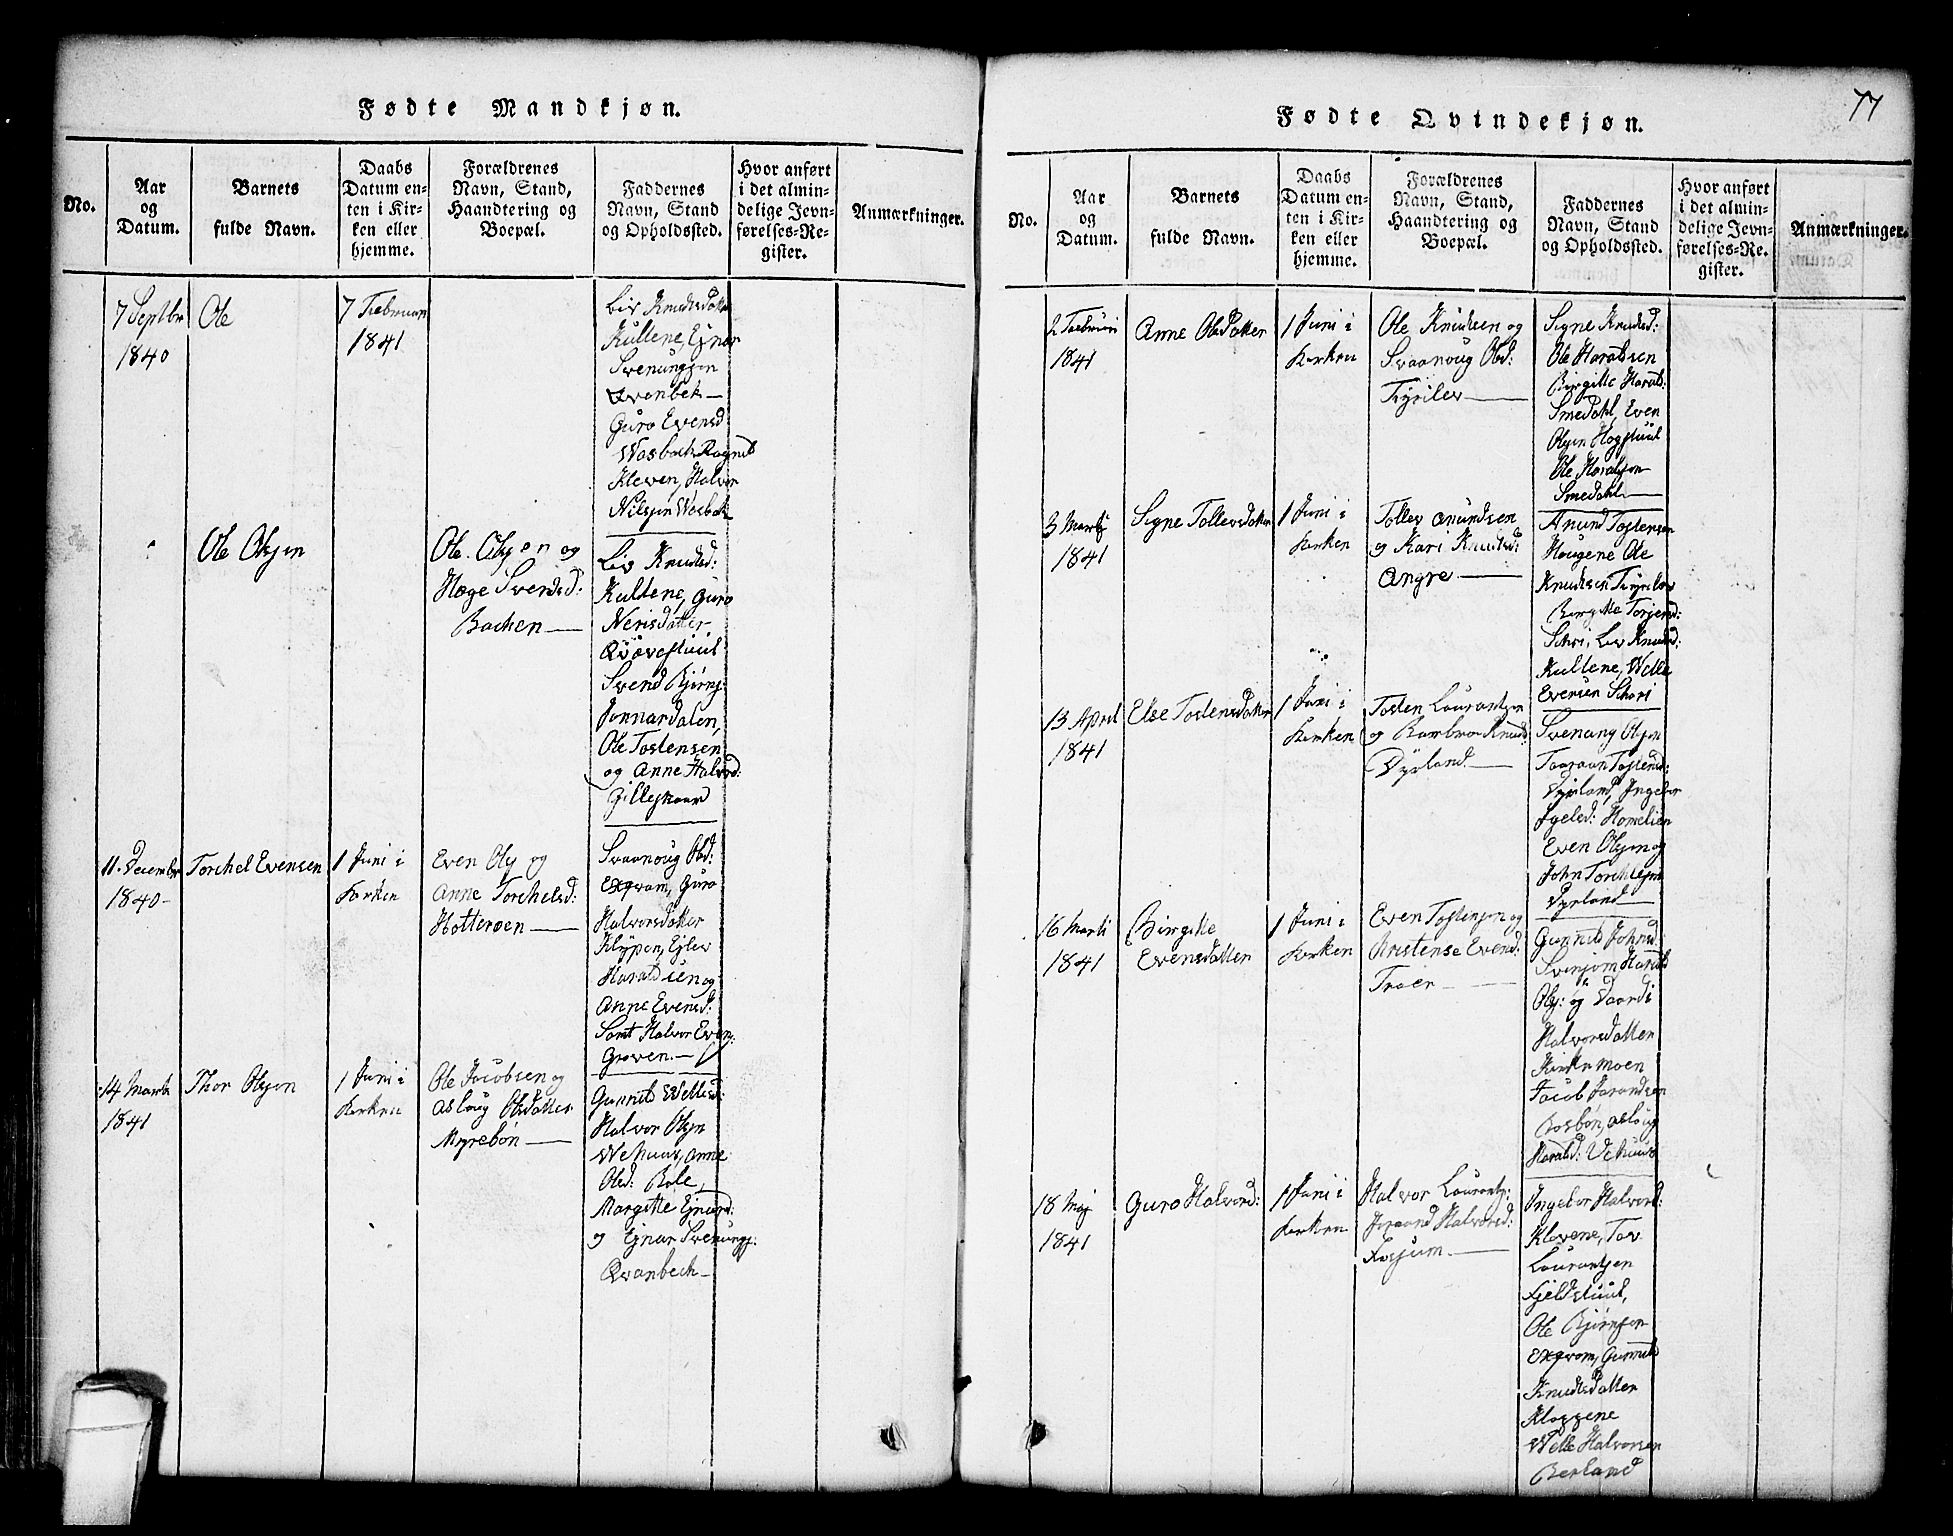 Fødte Mandkjøn.
No.
Aar
og
Datum.
Barnets
fulde Navn.
Daabs
Datum en-
ten i Kir-
ken eller
hjemme.
Forældrenes
Navn, Stand,
Haandtering og
Boepæl.
Faddernes
Navn, Stand
og Opholdssted.
Hvor anført
i det almin-
delige Jevn-
førelses-Re-
gister.
Anmærkninger.
7 Septbr
1840
Ole
7 Februar
1841
Liv Knudsdatter
Kultene, Ejnar
Svenungsen
Qvanbek
Guro Evensd
Wasbek Ragnild
Kleven, Halvor
Nilssen Wasbek
Ole Olsen
Ole Olsen og
Hæge Svendsd:
Backen
Liv Knudsd:
Kultene, Guro
Nerisdatter
Svend Bjørns:
Jonnardalen,
Ole Tostensen
og Anne Halvord:
Gilleskaard
11 December
1840
Torchel Evensen
1 Juni i
Kerken
Even Ols og
Anne Torchelsd:
Hotteroen
Svaanoug Olsd:
Exqvam, Guro
Halvorsdatter
Klypen, Ejlev
Haraldsen og
Anne Evensd:
Samt Halvor Even:
Groven
14 Marti
1841
Thor Olsen
1 Juni i
Kerken
Ole Jacobsen og
Asloug Olsdatter
Myrebøn
Gunnild Wetlesd:
Halvor Olsen
Wehuus, Anne
Olsd: Bøle,
Margitte Ejnard:
og Ejnar Svenungs:
Qvanbech
Fødte Qvindekjøn.
77
No.
Aar
og
Datum.
Barnets
fulde Navn.
Daabs
Datum en-
ten i Kir-
ken eller
hjemme.
Forældrenes
Navn, Stand,
Haandtering og
Boepæl.
Faddernes
Navn, Stand
og Opholdssted.
Hvor anført
i det almin-
delige Jevn-
førelses-Re-
gister.
Anmærkninger.
2 Februari
1841
Anne Olsdatter
1 Juni i
Kerken
Ole Knudsen og
Svaanoug Olsd:
Tyrilev
Signe Knudsd:
Ole Haraldsen
Birgitte Harald:
Smedahl, Even
Olsen Hogstuul
Ole Haralsen
Smedahl
3 Marti
1841
Signe Tollevsdatter
1 Juni i
Kerken
Tollev Anundsen
og Kari Knudsd:
Angre
Anund Tostensen
Haugene Ole
Knudsen Tyrilev
Birgitte Torjersd:
Schri, Liv Knudsd:
Kultene, Wetle
Evensen Schori
13 April
1841
Else Tostensdatter
1 Juni i
Kerken
Tosten Laurantsen
og Barbroe Knud:
Dyrland
Svenung Olsen
Taaraan Tostensd:
Dyrland, Ingebor
Igelsd: Homelien
Even Olsen og
John Torchilsen
Dyrland
16 Marti
1841
Birgitte
Evensdatter
1 Juni i
Kerken
Even Tostensen og
Kristense Evensd:
Traer
Gunnild Johnsd:
Svinjom Harald
Ols: og Taardi
Halvorsdatter
Kirkemoen
Jacob Jorandsen
Bosbøn, Asloug
Harald: Vehuus
18 Maj
1841
Guro Halvord:
1 Juni i
Kerken
Halvor Laurants:
Joraand Halvorsd:
Fosjum.
Ingebor Halvord:
Klevene, Tov
Laurantsen
Fjeldstuul,
Ole Bjørnsen
Exqvam, Gunnild
Knudtsdatter
Kloggene
Wetle Halvorsen
Berland